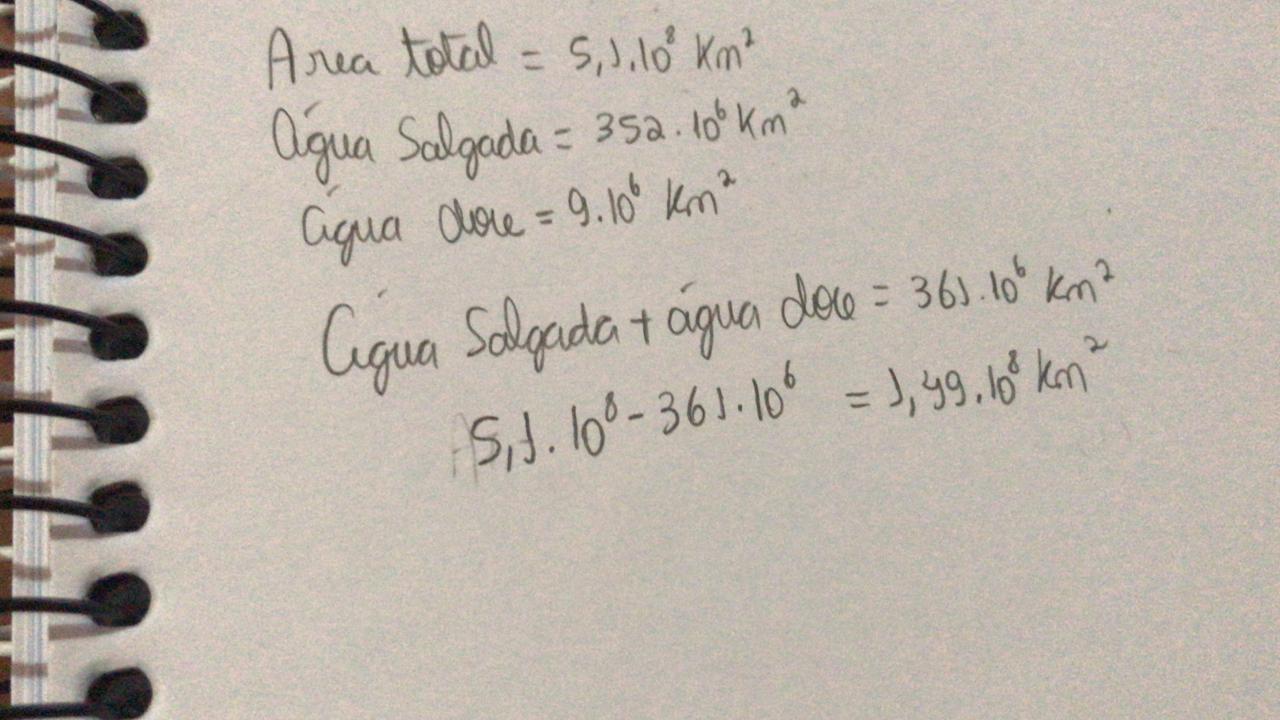 Área total = 5,1.10⁸ Km²
Água Salgada = 352.10⁶ Km²
água doce = 9.10⁶ Km²
Água Salgada + água doce = 361.10⁶ Km²
5,1.10⁸ - 361.10⁶ = 1,49.10⁸ Km²